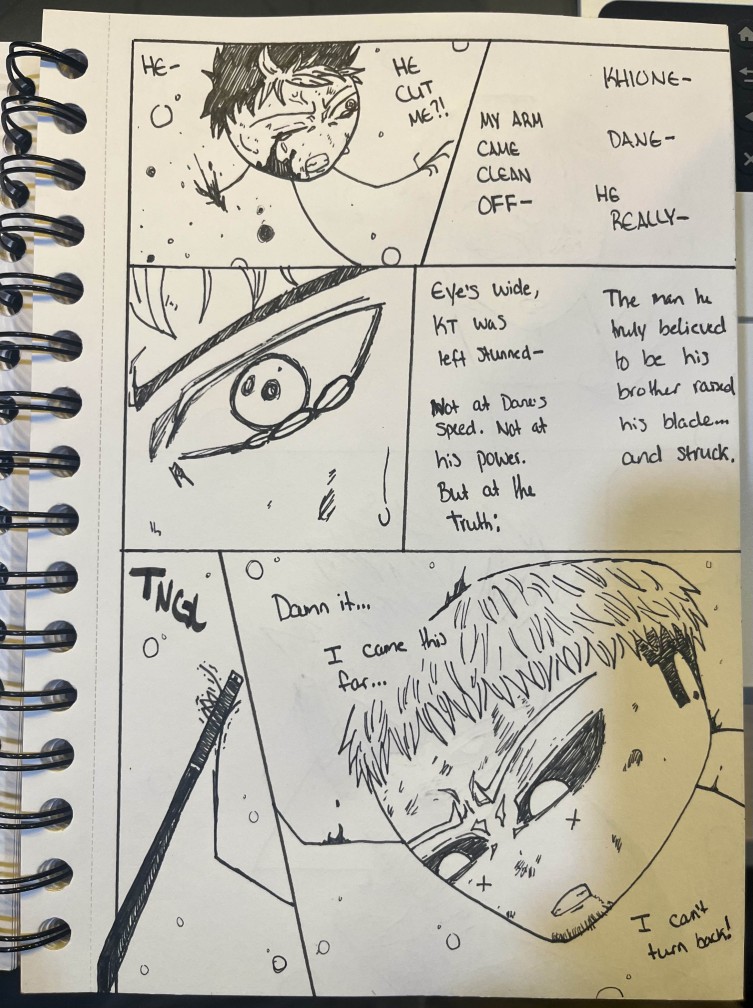 HE-
HE
CUT
ME?!
MY ARM
CAME
CLEAN
OFF-
KHIONE-
DANE-
HE
REALLY-
Eye's wide,
KT was
left stunned-
Not at Dane's
speed. Not at
his power.
But at the
truth:
The man he
truly believed
to be his
brother raised
his blade...
and struck.
TNGL
Damn it...
I came this
far...
I can't
turn back!